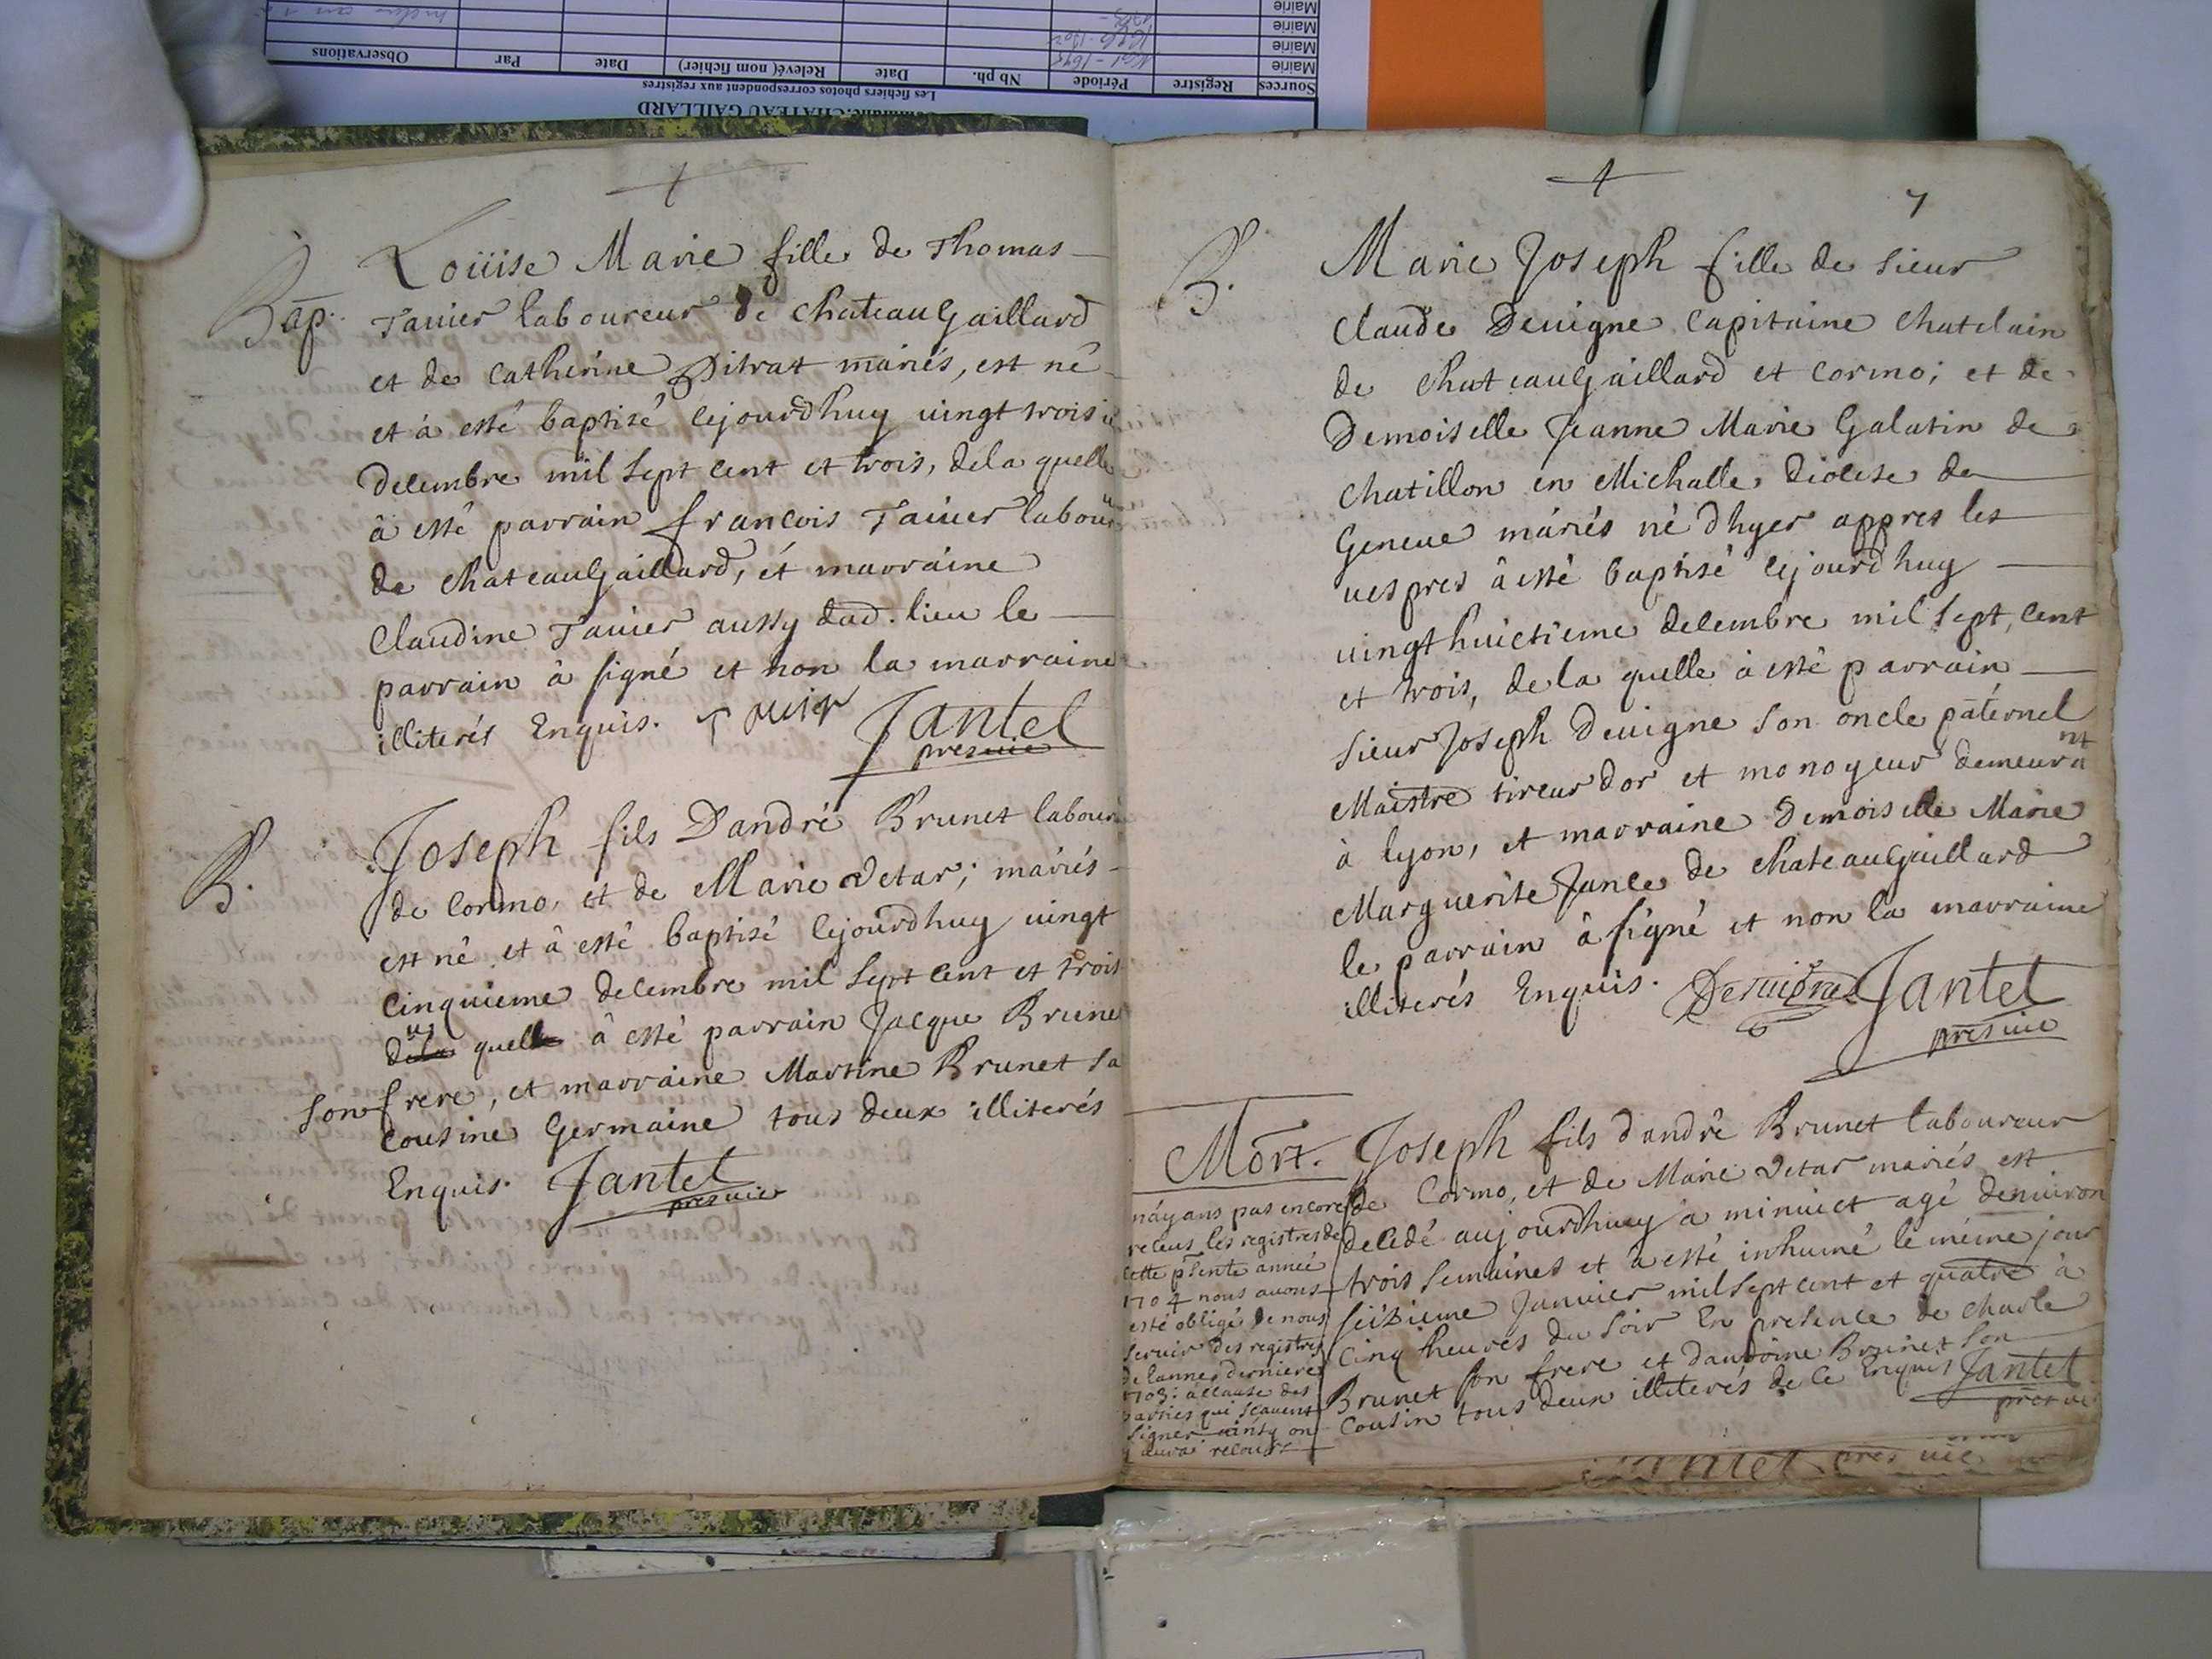 Commune: CHATEAU GAILLARD
Les fichiers photos correspondent aux registres
Sources Registre Période Nb ph. Date Relevé( nom fichier) Date Par Observations
Mairie
Mairie
Mairie
Mairie
Bap.
Loüise Marie fille de Thomas
Tauier laboureur de chateaugaillard
et de Catherine Ditrat mariés, est né
et à esté baptisé cejourdhuy uingt troisie
decembre mil sept cent et trois, dela quelle
à esté parrain francois Tauier labour
de chateaugaillard, et marraine
Claudine Tauier aussy dud. lieu le
parrain à signé et non la marraine
illiterés Enquis. Tauier Jantel
pres uic
B.
Joseph fils D'andré Brunet labour
de Cormo, et de Marie Detar; mariés
est né et à esté baptisé cejourdhuy uingt
Cinquieme decembre mil sept cent et trois
dela quelle à esté parrain Jacque Brunet
son frere, et marraine Martine Brunet sa
cousine Germaine tous deux illiterés
Enquis. Jantel
pres uic
7
B.
Marie Joseph fille de sieur
Claude Deuigne Capitaine chatelain
de chateaugaillard et Cormo; et de
Demoiselle Jeanne Marie Galatin de
Chatillon en Michalle diocese de
Geneue mariés né dhyer appres les
uespres à esté baptisé cejourdhuy
uingt huictieme decembre mil sept, cent
et trois, dela quelle à esté parrain
Sieur Joseph Deuigne son oncle paternel
Maistre tireur dor et monoyeur demeurant
à lyon, et marraine Demoiselle Marie
Marguerite Jance de chateaugaillard
le parrain à signé et non la marraine
illiterés Enquis. Deuigne Jantel
pres uic
Mort.
Joseph fils d'andré Brunet laboureur
de Cormo, et de Marie Detar mariés est
decedé aujourdhuy à minuict agé denuiron
trois semaines et à esté inhumé le méme jour
seizieme Januier mil sept cent et quatre à
Cinq heures du soir En presence de charle
Brunet son frere et dantoine Brunet son
Cousin tous deux illiterés de ce Enquis Jantel
pres uic
náyans pas encore
receus les registres de
cette pñsente année
1704 nous auons
esté obligé de nous
seruir des registres
de lannée derniere
1703: àcause des
parties qui scauent
signer ainsy on
y aura recours
Jantel pres uic